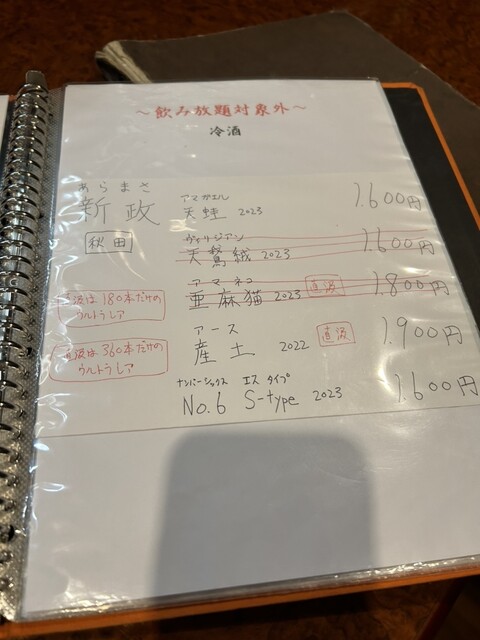 ～飲み放題対象外～
冷酒
あらまさ
新政
秋田
アマガエル
天蛙 2023 1.600円
ヴィリジアン
天鵞絨 2023 1.600円
アマーネコ
亜麻猫 2023 直汲 1.800円
直汲は180本だけの
ウルトラレア
アース
産土 2022 直汲 1.900円
直汲は360本だけの
ウルトラレア
ナンバーシックス エス タイプ
No.6 S-type 2023 1.600円